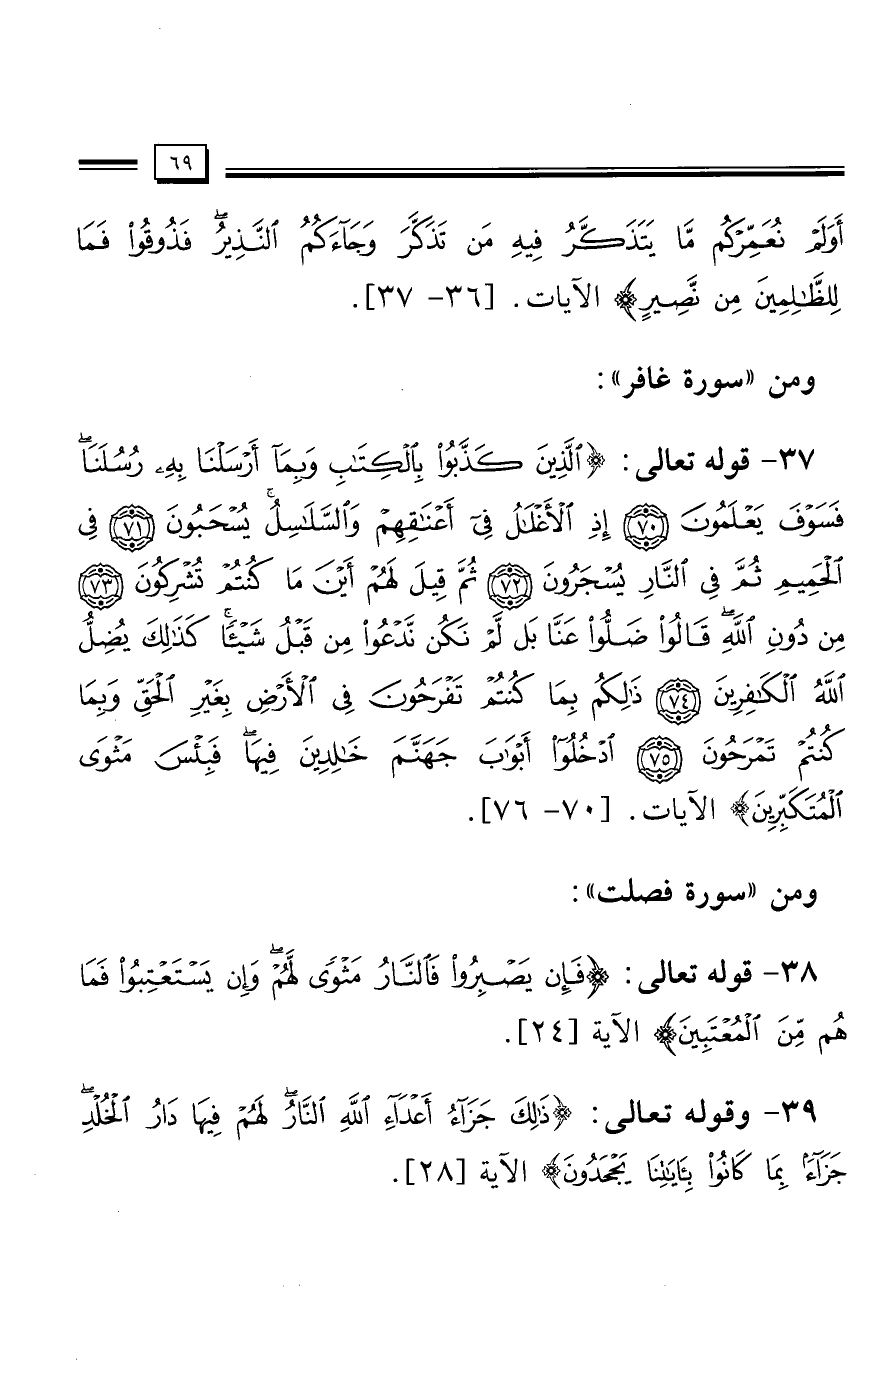 ٦٩
أَوَلَمْ نُعَمِّرْكُم مَّا يَتَذَكَّرُ فِيهِ مَن تَذَكَّرَ وَجَآءَكُمُ ٱلنَّذِيرُ ۖ فَذُوقُوا۟ فَمَا
لِلظَّـٰلِمِينَ مِن نَّصِيرٍ﴾ الآيات. [٣٦- ٣٧].
ومن «سورة غافر»:
٣٧- قوله تعالى: ﴿ٱلَّذِينَ كَذَّبُوا۟ بِٱلْكِتَـٰبِ وَبِمَآ أَرْسَلْنَا بِهِۦ رُسُلَنَا ۖ
فَسَوْفَ يَعْلَمُونَ ۝٧٠ إِذِ ٱلْأَغْلَـٰلُ فِىٓ أَعْنَـٰقِهِمْ وَٱلسَّلَـٰسِلُ ۚ يُسْحَبُونَ ۝٧١ فِى
ٱلْحَمِيمِ ثُمَّ فِى ٱلنَّارِ يُسْجَرُونَ ۝٧٢ ثُمَّ قِيلَ لَهُمْ أَيْنَ مَا كُنتُمْ تُشْرِكُونَ ۝٧٣
مِن دُونِ ٱللَّهِ ۖ قَالُوا۟ ضَلُّوا۟ عَنَّا بَل لَّمْ نَكُن نَّدْعُوا۟ مِن قَبْلُ شَيْـًٔا ۚ كَذَٰلِكَ يُضِلُّ
ٱللَّهُ ٱلْكَـٰفِرِينَ ۝٧٤ ذَٰلِكُم بِمَا كُنتُمْ تَفْرَحُونَ فِى ٱلْأَرْضِ بِغَيْرِ ٱلْحَقِّ وَبِمَا
كُنتُمْ تَمْرَحُونَ ۝٧٥ ٱدْخُلُوٓا۟ أَبْوَٰبَ جَهَنَّمَ خَـٰلِدِينَ فِيهَا ۖ فَبِئْسَ مَثْوَى
ٱلْمُتَكَبِّرِينَ﴾ الآيات. [٧٠- ٧٦].
ومن «سورة فصلت»:
٣٨- قوله تعالى: ﴿فَإِن يَصْبِرُوا۟ فَٱلنَّارُ مَثْوًى لَّهُمْ ۖ وَإِن يَسْتَعْتِبُوا۟ فَمَا
هُم مِّنَ ٱلْمُعْتَبِينَ﴾ الآية [٢٤].
٣٩- وقوله تعالى: ﴿ذَٰلِكَ جَزَآءُ أَعْدَآءِ ٱللَّهِ ٱلنَّارُ ۖ لَهُمْ فِيهَا دَارُ ٱلْخُلْدِ ۖ
جَزَآءًۢ بِمَا كَانُوا۟ بِـَٔايَـٰتِنَا يَجْحَدُونَ﴾ الآية [٢٨].